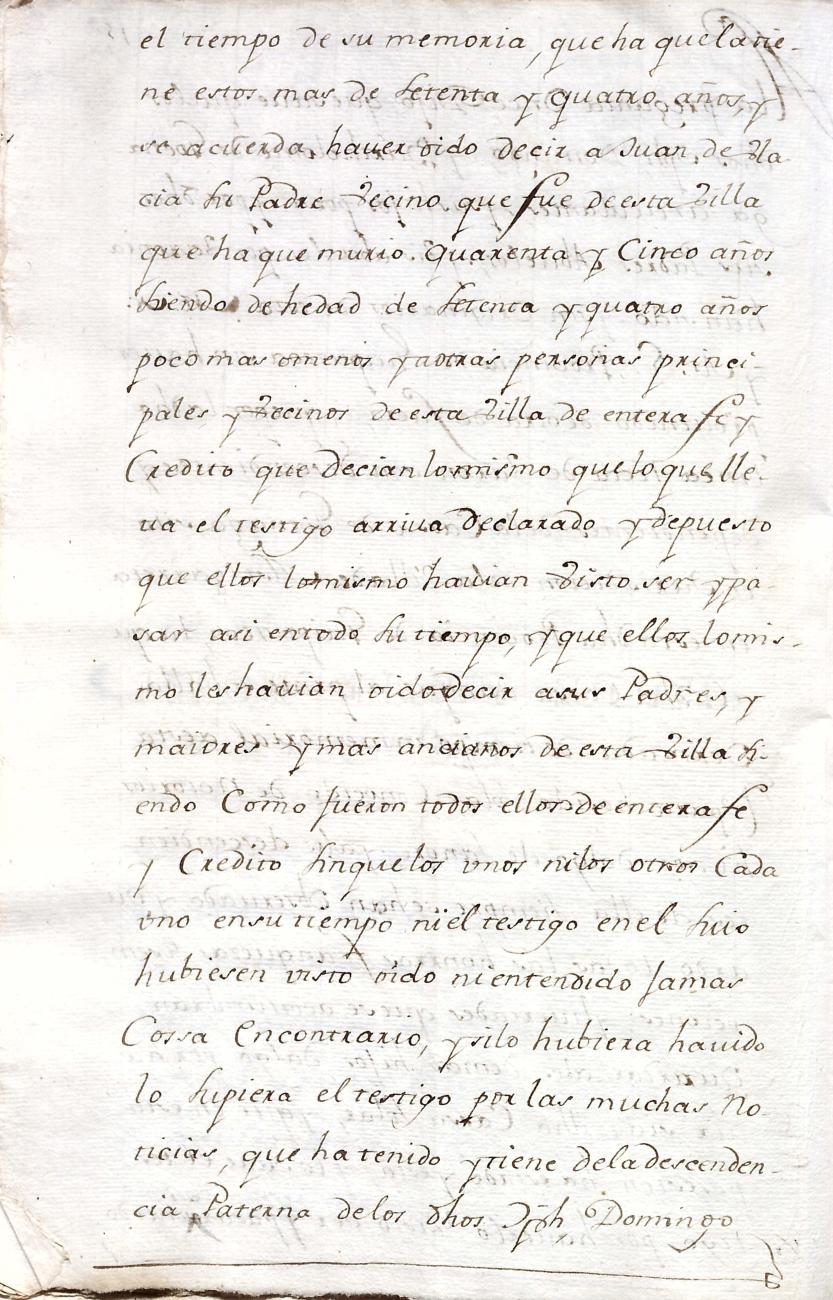 el tiempo de su memoria, que ha que la tie-
ne estos mas de setenta y quatro años, y
se acuerda, haver oido decir a Juan, de Ila
cia su Padre Vecino que fue de esta Villa
que ha que murio. Quarenta y Cinco años
siendo de hedad de setenta y quatro años
poco mas omenos y aotras personas princi-
pales y Vecinos de esta Villa de entera fe y
Credito que decian lo mismo que lo que lle-
va el testigo arriva declarado y depuesto
que ellos lo mismo havian Visto ser y pa-
sar asi en todo su tiempo, y que ellos lo mis-
mo les havian oido decir a sus Padres, y
maiores y mas ancianos de esta Villa si-
endo Como fueron todos ellos de entera fe
y Credito sin que los unos ni los otros Cada
uno en su tiempo ni el testigo en el suio
hubiesen visto oido ni entendido Jamas
Cossa en contrario, y si lo hubiera havido
lo supiera el testigo por las muchas No-
ticias, que ha tenido y tiene de la descenden-
cia Paterna de los dhos Jph Domingo